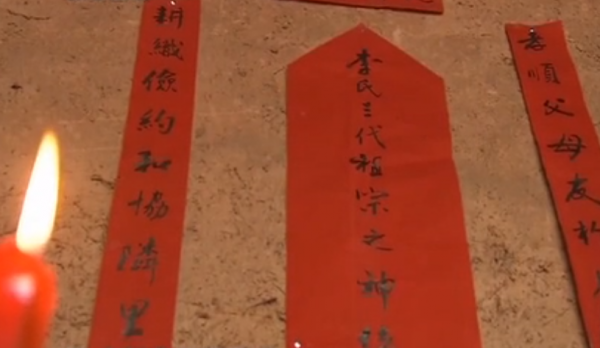 孝順父母友
李氏三代祖宗之神
耕織儉約和協隣里